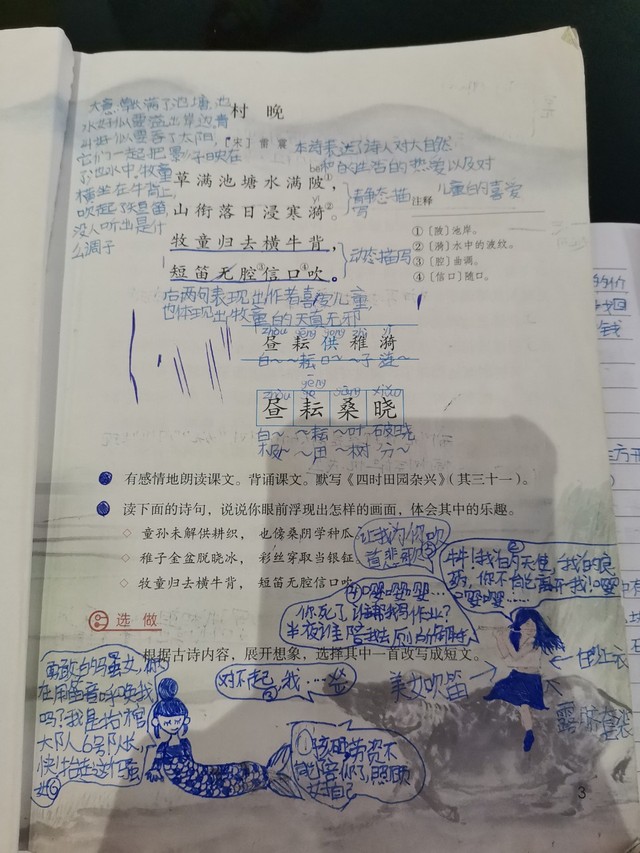 村 晚
[宋] 雷 震
草满池塘水满陂①，
山衔落日浸寒漪②。
牧童归去横牛背，
短笛无腔③信口④吹。
大意：草长满了池塘，池
水好似要溢出岸边，青
山好似要吞了太阳，
它们一起把影子印映在
了池水中。牧童
横坐在牛背上，
吹起了短笛，
没人听出是什
么调子
本诗表达了诗人对大自然
和的生活的热爱以及对
儿童的喜爱
静态描写
动态描写
注释
①〔陂〕池岸。
②〔漪〕水中的波纹。
③〔腔〕曲调。
④〔信口〕随口。
后两句表现出作者喜爱儿童，
也体现出牧童的天真无邪
zhòu yún gòng zhì yī
昼 耘 供 稚 漪
白～ ～耘 口～ ～子 涟～
昼 耘 桑 晓
白～ ～耘 ～叶 破晓
极～ ～田 ～树 分～
有感情地朗读课文。背诵课文。默写《四时田园杂兴》（其三十一）。
读下面的诗句，说说你眼前浮现出怎样的画面，体会其中的乐趣。
◇ 童孙未解供耕织， 也傍桑阴学种瓜
◇ 稚子金盆脱晓冰， 彩丝穿取当银钲
◇ 牧童归去横牛背， 短笛无腔信口吹
让我为你吹
首悲歌
牛牛！我的天使，我的良
药，你不能离开我！嘤
嘤嘤……
④嘤嘤嘤……
你死了谁帮我写作业？
半夜谁陪我去
选 做
根据古诗内容，展开想象，选择其中一首改写成短文。
对不起，我……
美女吹笛
露脐套装
在用笛音呼唤我
吗？我是
大队人6号队长，
照顾
3